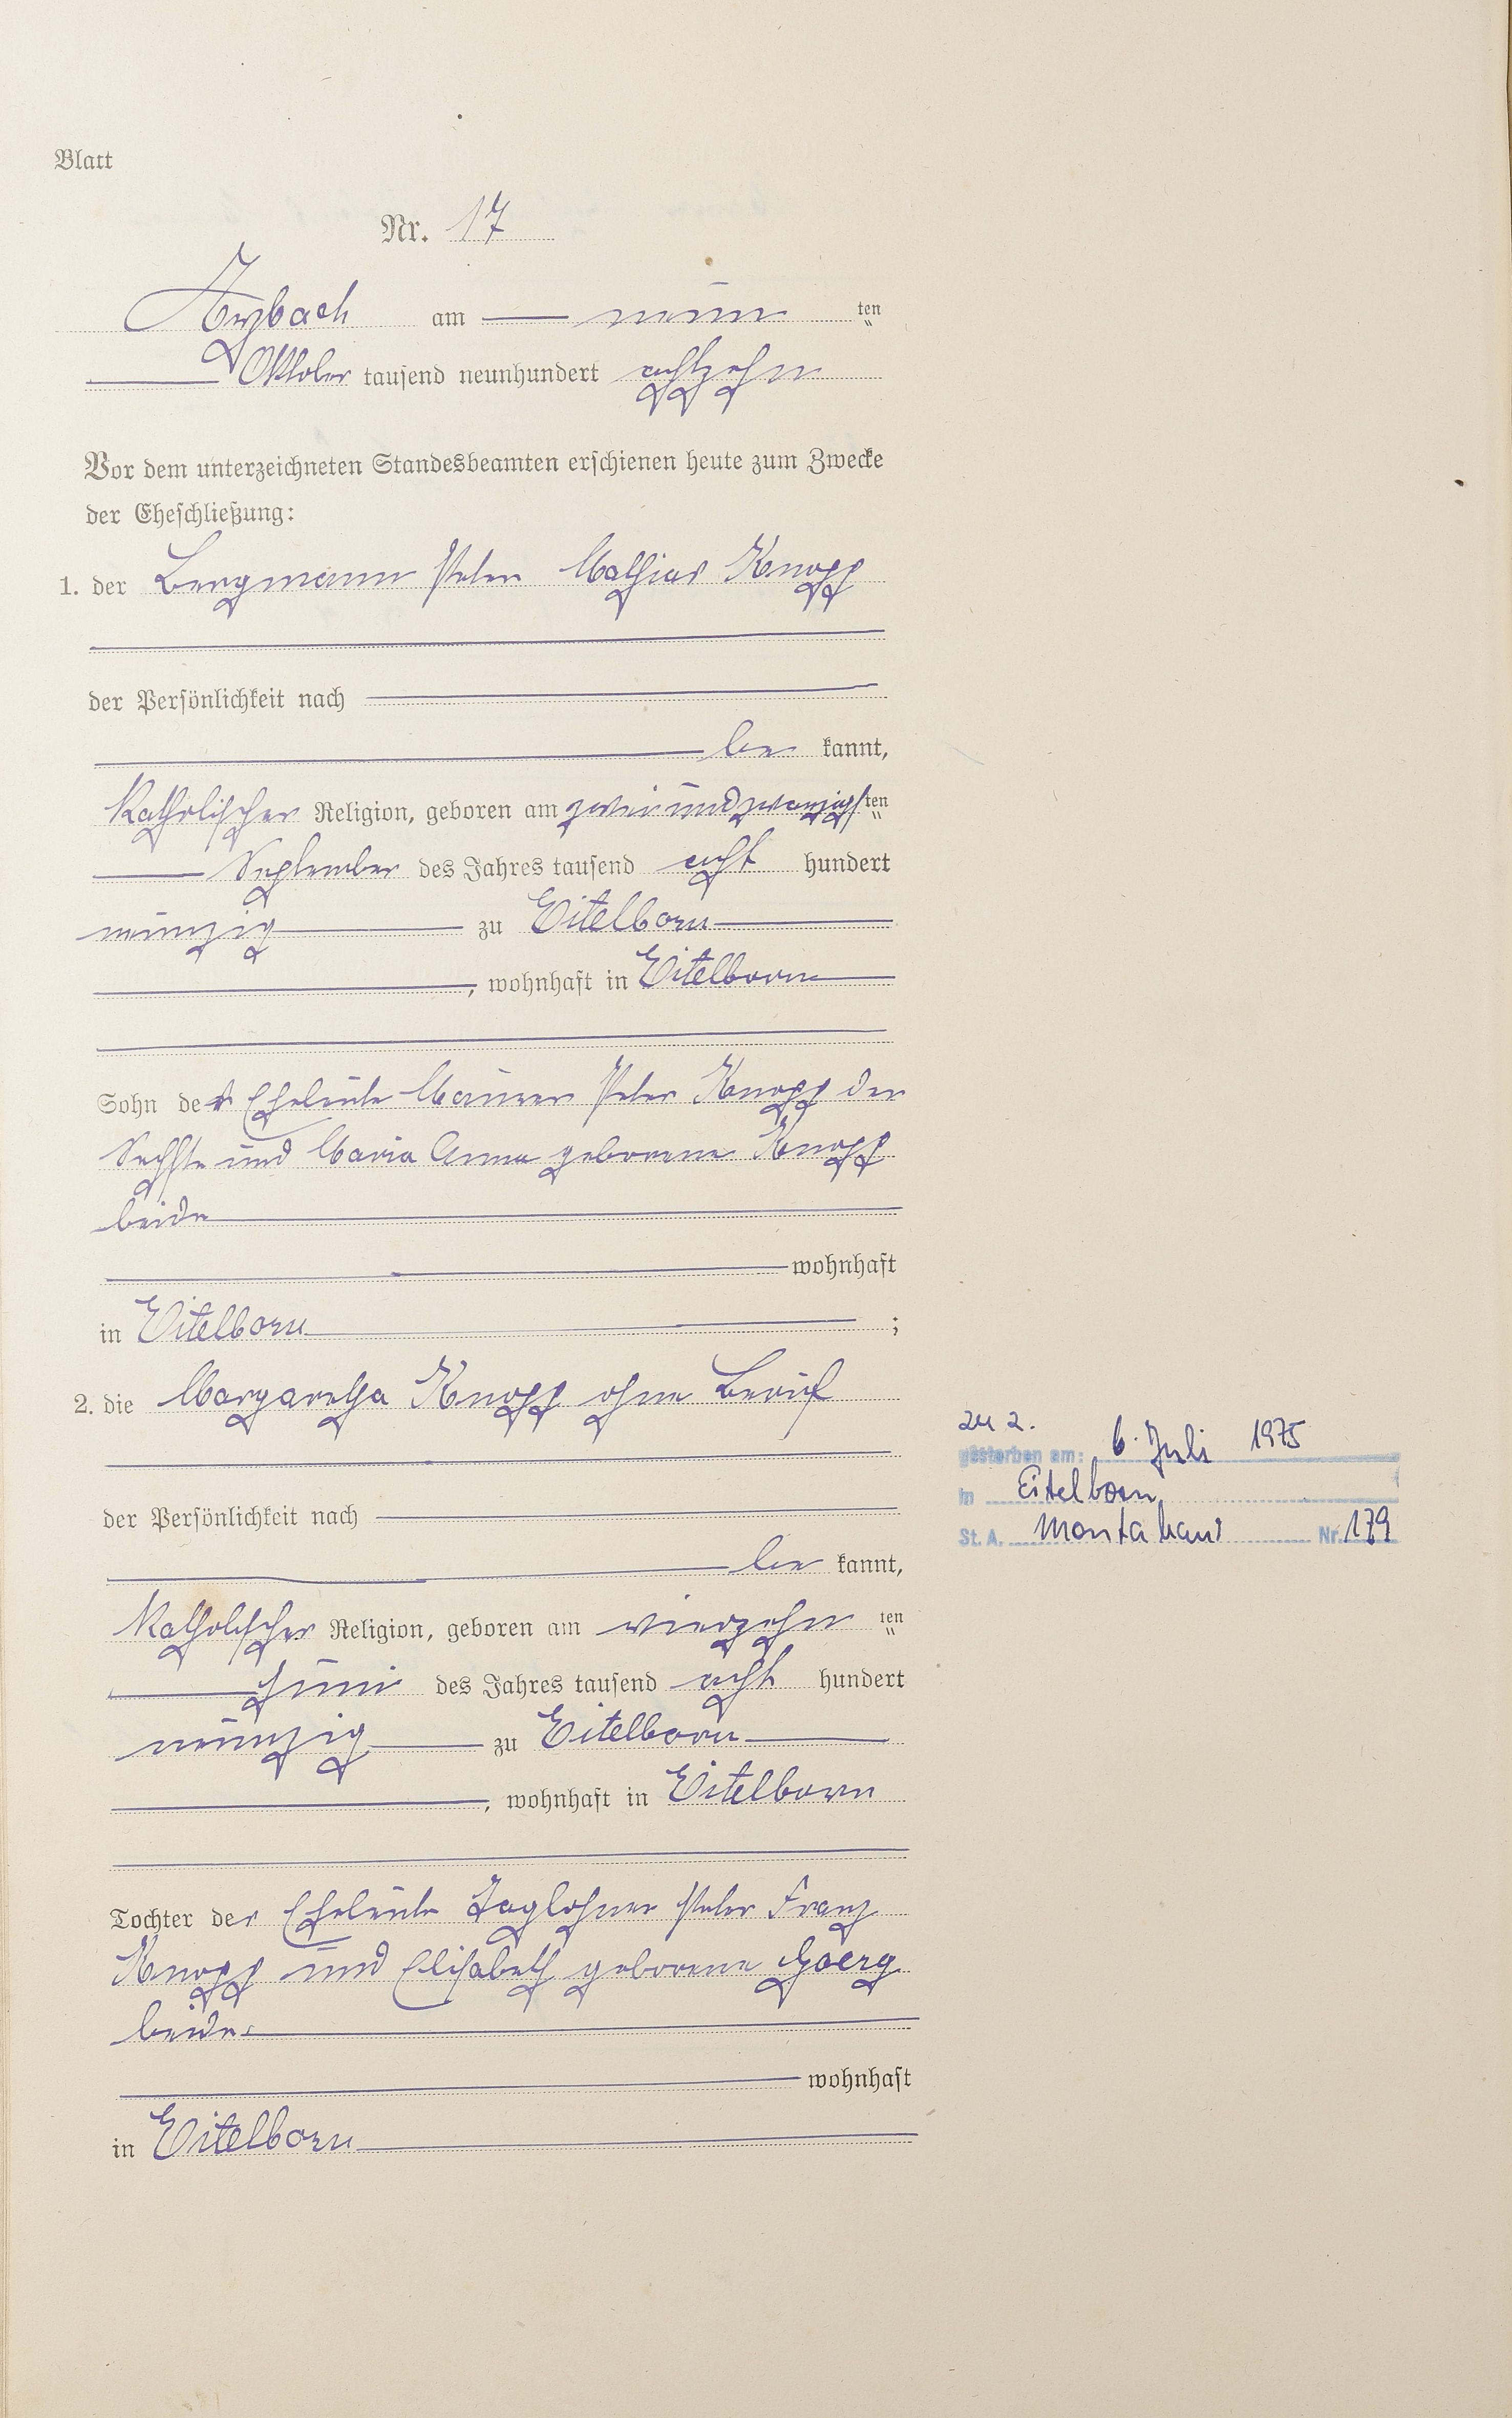 Blatt
Nr. 17
Arzbach am neun ten
Oktober tausend neunhundert achtzehn
Vor dem unterzeichneten Standesbeamten erschienen heute zum Zwecke
der Eheschließung:
1. der Bergmann Peter Mathias Knopp
der Persönlichkeit nach
be kannt,
Katholischer Religion, geboren am zweiundzwanzigsten
September des Jahres tausend acht hundert
neunzig zu Eitelborn
, wohnhaft in Eitelborn
Sohn der Eheleute Maurer Peter Knopp der
Sechste und Maria Anna geborene Knopp
beide
wohnhaft
in Eitelborn ;
2. die Margaretha Knopp ohne Beruf
der Persönlichkeit nach
be kannt,
Katholischer Religion, geboren am vierzehn ten
Juni des Jahres tausend acht hundert
neunzig zu Eitelborn
, wohnhaft in Eitelborn
Tochter der Eheleute Taglöhner Peter Franz
Knopp und Elisabeth geborene Goerg
beide
wohnhaft
in Eitelborn
zu 2.
gestorben am: 6. Juli 1975
in Eitelborn
St. A. Montabaur Nr. 179